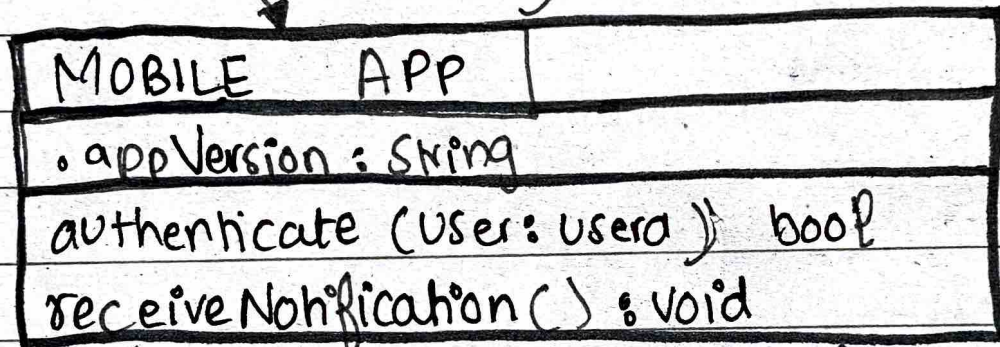 MOBILE APP
. appVersion : String
authenticate (user: usera): bool
receiveNotification() : void